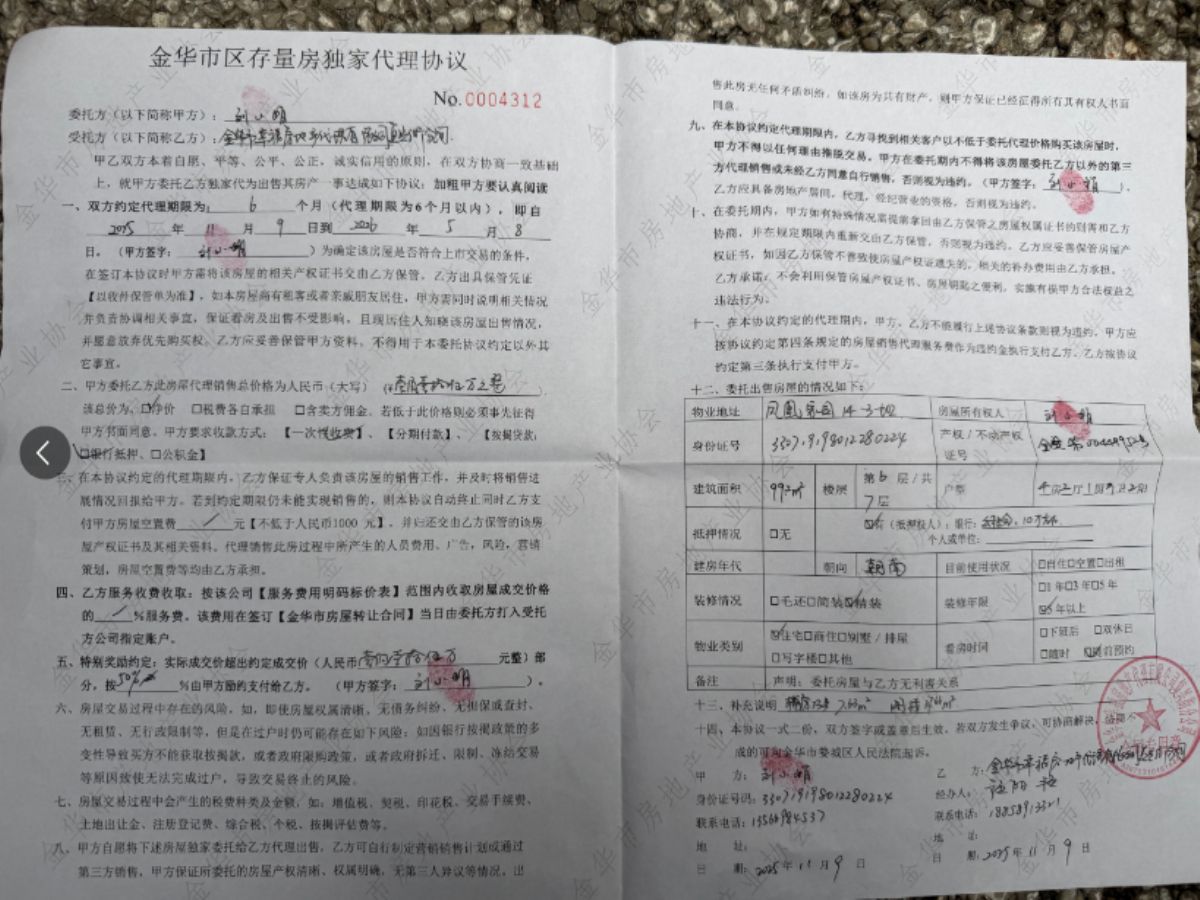 金华市区存量房独家代理协议
No.0004312
委托方（以下简称甲方）：刘小娟
受托方（以下简称乙方）：
甲乙双方本着自愿、平等、公平、公正，诚实信用的原则，在双方协商一致基础
上，就甲方委托乙方独家代为出售其房产一事达成如下协议：加粗甲方要认真阅读
一、双方约定代理期限为：6个月（代理期限为6个月以内），即自
2025年11月9日到2026年5月8
日。（甲方签字：刘小娟）为确定该房屋是否符合上市交易的条件，
在签订本协议时甲方需将该房屋的相关产权证书交由乙方保管，乙方出具保管凭证
【以收件保管单为准】，如本房屋尚有租客或者亲戚朋友居住，甲方需同时说明相关情况
并负责协调相关事宜，保证看房及出售不受影响，且现居住人知晓该房屋出售情况，
并愿意放弃优先购买权。乙方应妥善保管甲方资料，不得用于本委托协议约定以外其
它事宜。
二、甲方委托乙方此房屋代理销售总价格为人民币（大写）
该总价为：☑净价 □税费各自承担 □含卖方佣金。若低于此价格则必须事先征得
甲方书面同意。甲方要求收款方式：【一次性收款】、【分期付款】、【按揭贷款：
□银行抵押、□公积金】
三、在本协议约定的代理期限内，乙方保证专人负责该房屋的销售工作，并及时将销售进
展情况回报给甲方。若到约定期限仍未能实现销售的，则本协议自动终止同时乙方支
付甲方房屋空置费 / 元【不低于人民币1000 元】，并归还交由乙方保管的该房
屋产权证书及其相关资料。代理销售此房过程中所产生的人员费用、广告，风险，营销
策划，房屋空置费等均由乙方承担。
四、乙方服务收费收取：按该公司【服务费用明码标价表】范围内收取房屋成交价格
的 / %服务费。该费用在签订【金华市房屋转让合同】当日由委托方打入受托
方公司指定账户。
五、特别奖励约定：实际成交价超出约定成交价（人民币 元整）部
分，按50%%由甲方励约支付给乙方。（甲方签字：刘小娟）。
六、房屋交易过程中存在的风险，如，即使房屋权属清晰、无债务纠纷、无担保或查封、
无租赁、无行政限制等，但是在过户时仍可能存在如下风险：如因银行按揭政策的多
变性导致买方不能获取按揭款，或者政府限购政策，或者政府拆迁、限制、冻结交易
等原因致使无法完成过户，导致交易终止的风险。
七、房屋交易过程中会产生的税费种类及金额，如：增值税、契税、印花税、交易手续费、
土地出让金、注册登记费、综合税、个税、按揭评估费等。
八、甲方自愿将下述房屋独家委托给乙方代理出售，乙方可自行制定营销销售计划或通过
第三方销售，甲方保证所委托的房屋产权清晰、权属明确，无第三人异议等情况。出
售此房无任何矛盾纠纷，如该房为共有财产，则甲方保证已经征得所有共有权人书面
同意。
九、在本协议约定代理期限内，乙方寻找到相关客户以不低于委托代理价格购买该房屋时，
甲方不得以任何理由推脱交易。甲方在委托期内不得将该房屋委托乙方以外的第三
方代理销售或未经乙方同意自行销售，否则视为违约。（甲方签字：刘小娟）。
乙方应具备房地产居间，代理，经纪营业的资格，否则视为违约。
十、在委托期内，甲方如有特殊情况需提前拿回由乙方保管之房屋权属证书的则需和乙方
协商，并在规定期限内重新交由乙方保管，否则视为违约。乙方应妥善保管房屋产
权证书，如因乙方保管不善致使房屋产权证遗失的，相关的补办费用由乙方承担。
乙方承诺：不会利用保管房屋产权证书、房屋钥匙之便利，实施有损甲方合法权益之
违法行为。
十一、在本协议约定的代理期内，甲方、乙方不能履行上述协议条款则视为违约，甲方应
按协议约定第四条规定的房屋销售代理服务费作为违约金执行支付乙方。乙方按协议
约定第三条执行支付甲方。
十二、委托出售房屋的情况如下：
物业地址 房屋所有权人 刘小娟
身份证号 330719198012280224 产权/不动产权证号
建筑面积 楼层 第6层/共7层 户型
抵押情况 □无 ☑有（抵押权人）：银行：
个人或单位：
建房年代 朝向 朝南 目前使用状况 □自住□空置□出租
装修情况 □毛还□简装☑精装 装修年限 □1年□3年□5年
☑5年以上
物业类别 ☑住宅□商住□别墅/排屋
□写字楼□其他 看房时间 □下班后 □双休日
□随时 ☑提前预约
备注 声明：委托房屋与乙方无利害关系
十三、补充说明
十四、本协议一式二份，双方签字或盖章后生效，若双方发生争议，可协商解决，协商不
成的可向金华市婺城区人民法院起诉。
甲 方：刘小娟
身份证号码：330719198012280224
联系电话：
地 址：
日 期：2025年11月9日
乙 方：
经办人：
联系电话：
地 址：
日 期：2025年11月9日